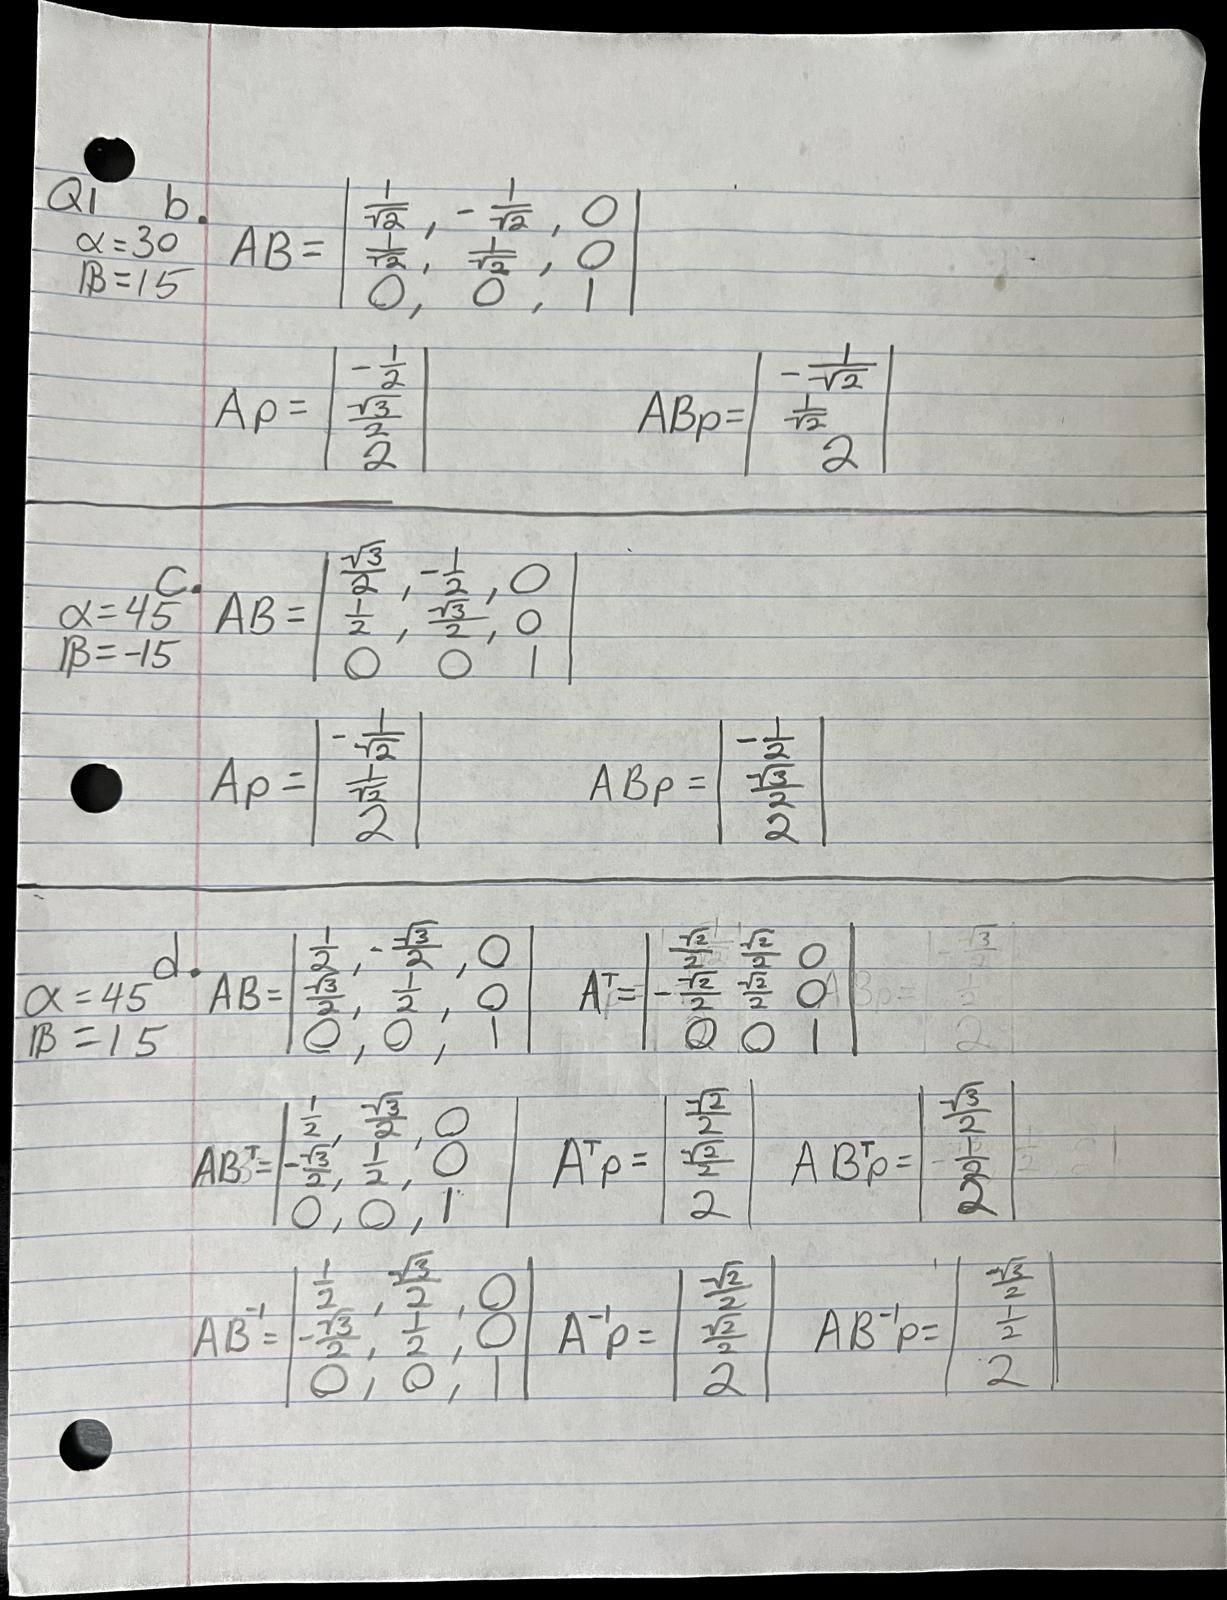 Q1 b.
α=30
β=15
AB = | 1/√2 , -1/√2 , 0 |
| 1/√2 , 1/√2 , 0 |
| 0 , 0 , 1 |
Ap = | -1/2 |
| √3/2 |
| 2 |
ABp = | -1/√2 |
| 1/√2 |
| 2 |
c.
α=45
β=-15
AB = | √3/2 , -1/2 , 0 |
| 1/2 , √3/2 , 0 |
| 0 0 1 |
Ap = | -1/√2 |
| 1/√2 |
| 2 |
ABp = | -1/2 |
| √3/2 |
| 2 |
d.
α=45
β=15
AB = | 1/2 , -√3/2 , 0 |
| √3/2 , 1/2 , 0 |
| 0 , 0 , 1 |
Aᵀ = | √2/2 √2/2 0 |
| -√2/2 √2/2 0 |
| 0 0 1 |
ABᵀ = | 1/2 , √3/2 , 0 |
| -√3/2 , 1/2 , 0 |
| 0 , 0 , 1 |
Aᵀp = | √2/2 |
| √2/2 |
| 2 |
ABᵀp = | √3/2 |
| 1/2 |
| 2 |
AB⁻¹ = | 1/2 , √3/2 , 0 |
| -√3/2 , 1/2 , 0 |
| 0 , 0 , 1 |
A⁻¹p = | √2/2 |
| √2/2 |
| 2 |
AB⁻¹p = | √3/2 |
| 1/2 |
| 2 |